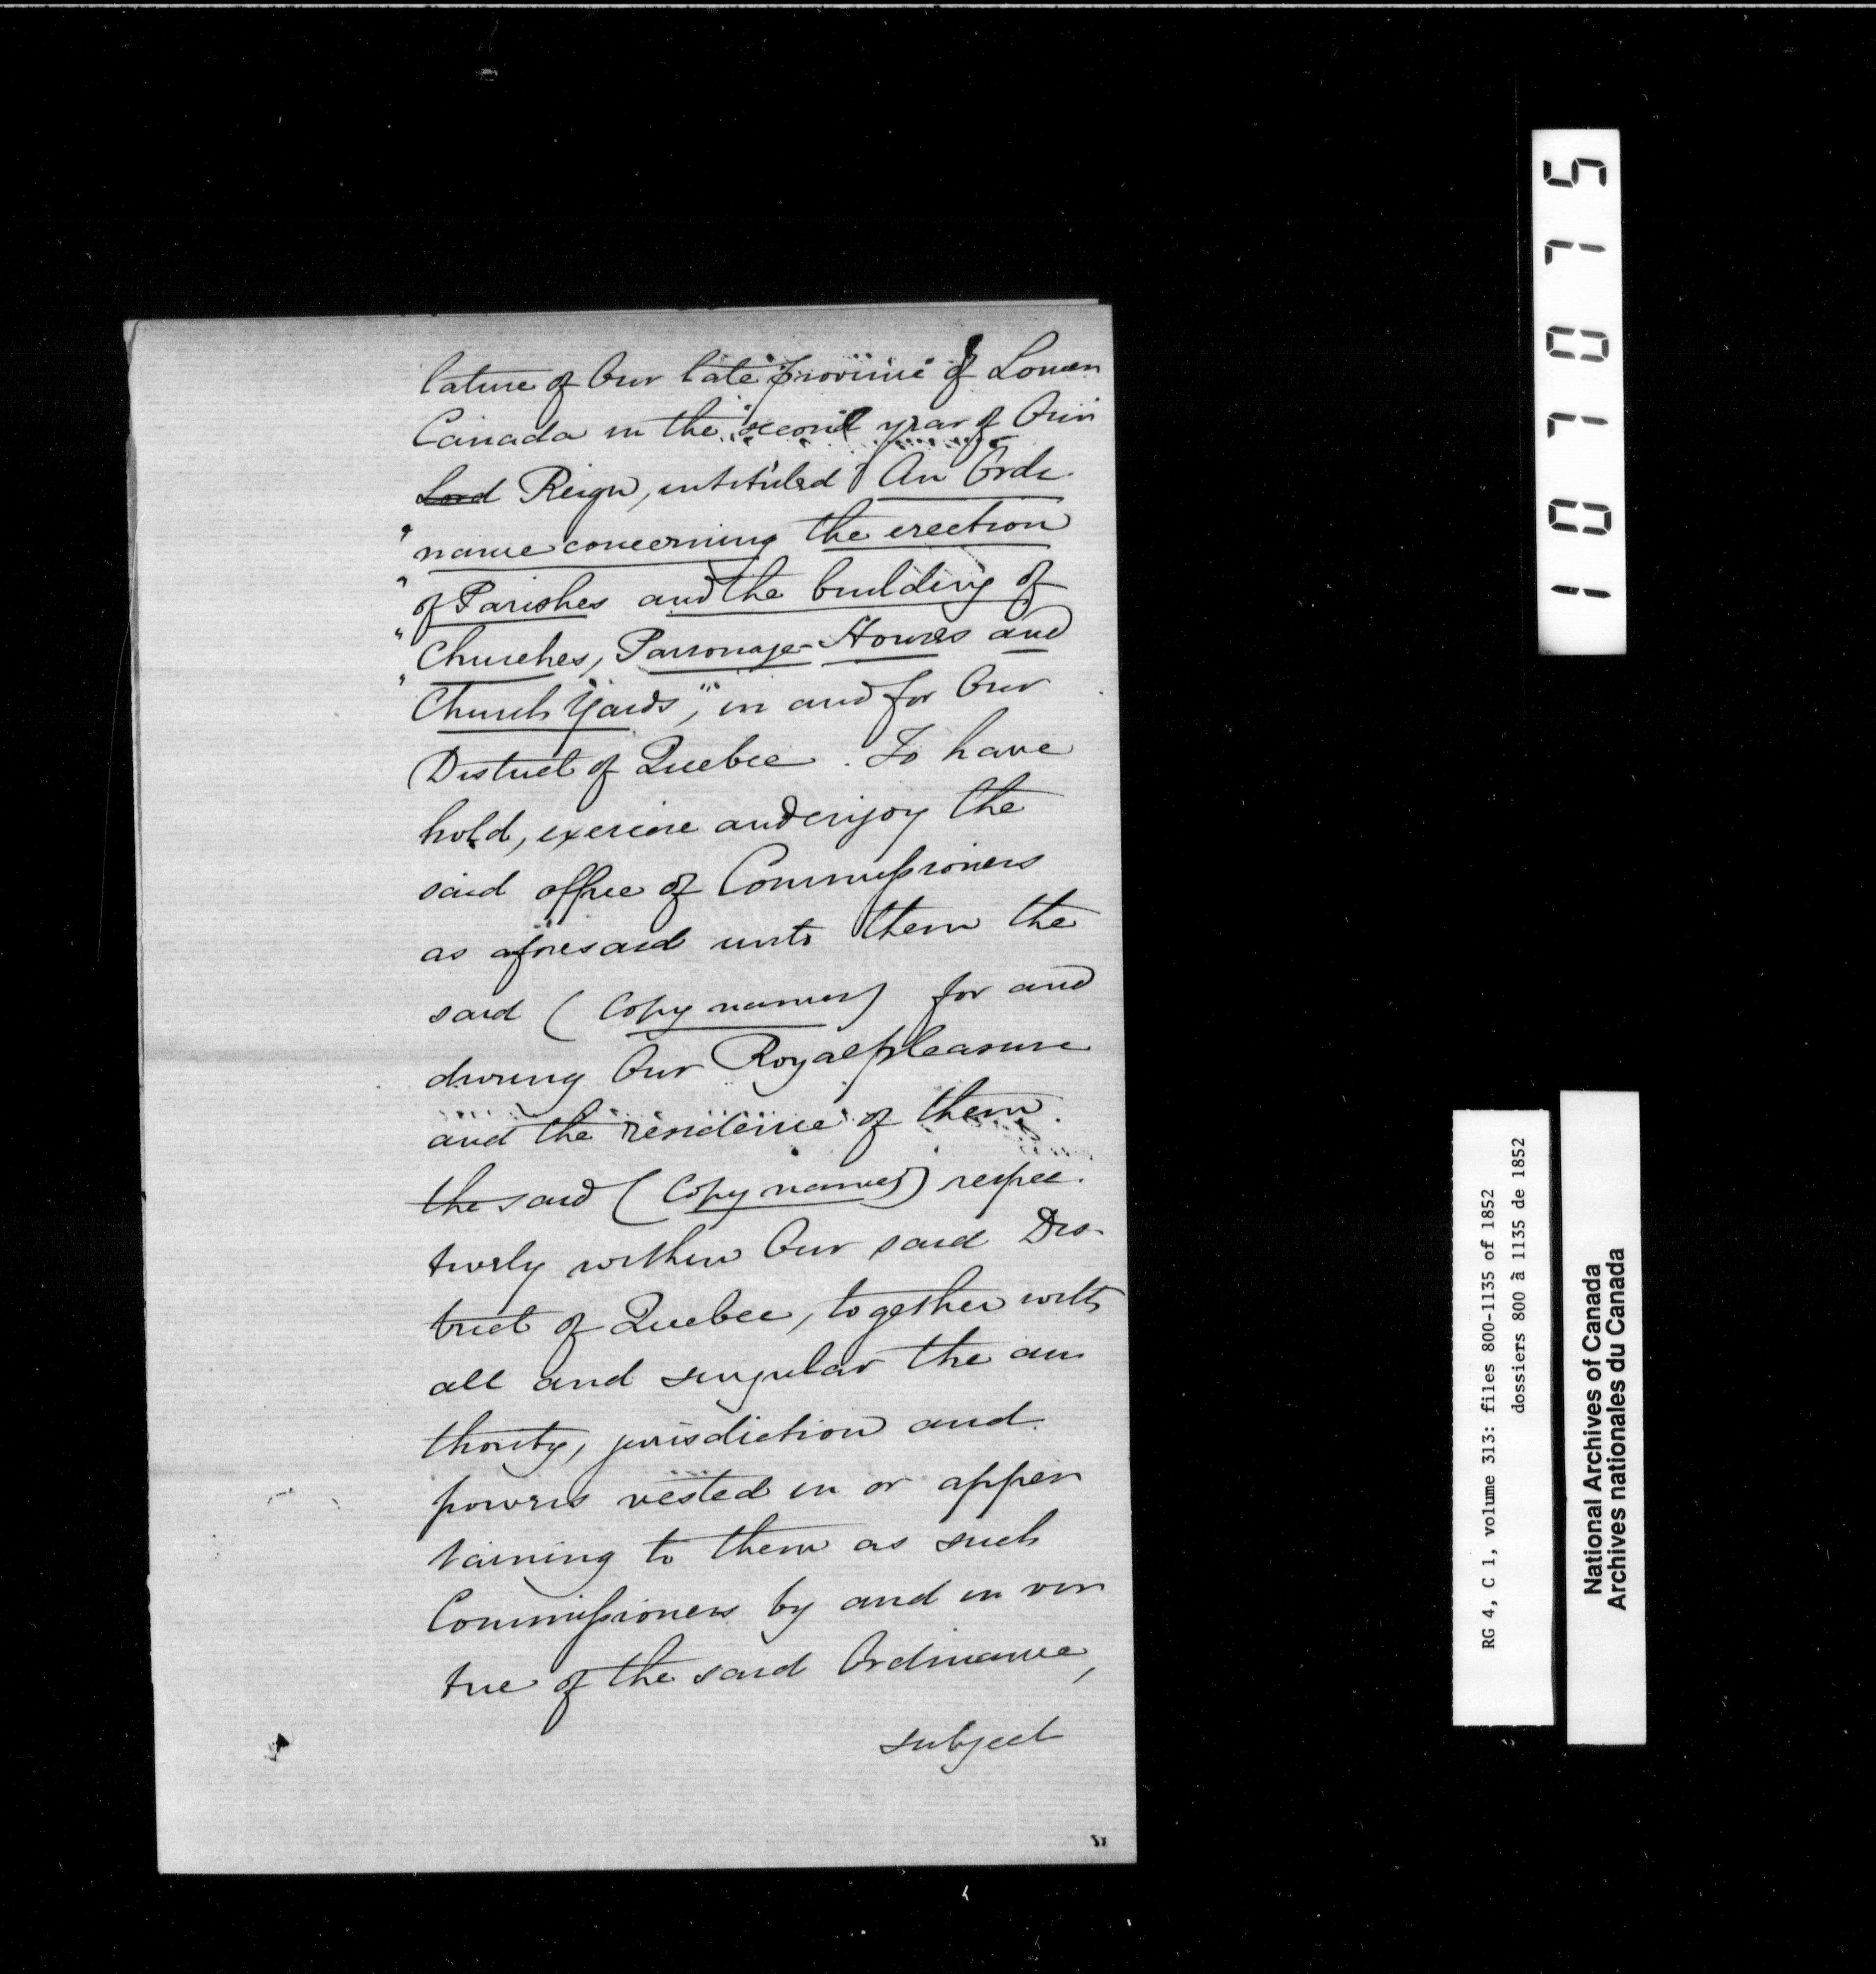 lature of Our late province of Lower
Canada in the second year of Our
Lord Reign, intituled "An Ordi
"nance concerning the erection
"of Parishes and the building of
"Churches, Parsonage-Houses and
"Church Yards", in and for Our
District of Quebec. To have
hold, exercise and enjoy the
said office of Commissioners
as aforesaid unto them the
said (Copy names) for and
during Our Royal pleasure
and the residence of them
the said (Copy names) respec-
tively within Our said Dis-
trict of Quebec, together with
all and singular the au
thority, jurisdiction and
powers vested in or apper
taining to them as such
Commissioners by and in vir
tue of the said Ordinance,
subject
107075
RG 4, C 1, volume 313: files 800-1135 of 1852
dossiers 800 à 1135 de 1852
National Archives of Canada
Archives nationales du Canada